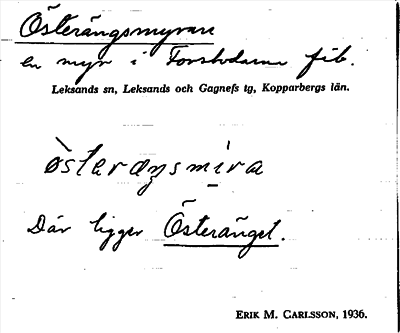 Österängsmyran
en myr i Forshodarna fäb.
Leksands sn, Leksands och Gagnefs tg, Kopparbergs län.
òsteræŋsmi̠ra
Där ligger Österänget.
ERIK M. CARLSSON, 1936.